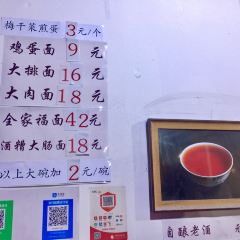 梅干菜煎蛋 3元/个
鸡蛋面 9 元
大排面 16 元
大肉面 18 元
全家福面 42元
酒糟大肠面 18元
以上大碗加 2 元/碗
自酿老酒